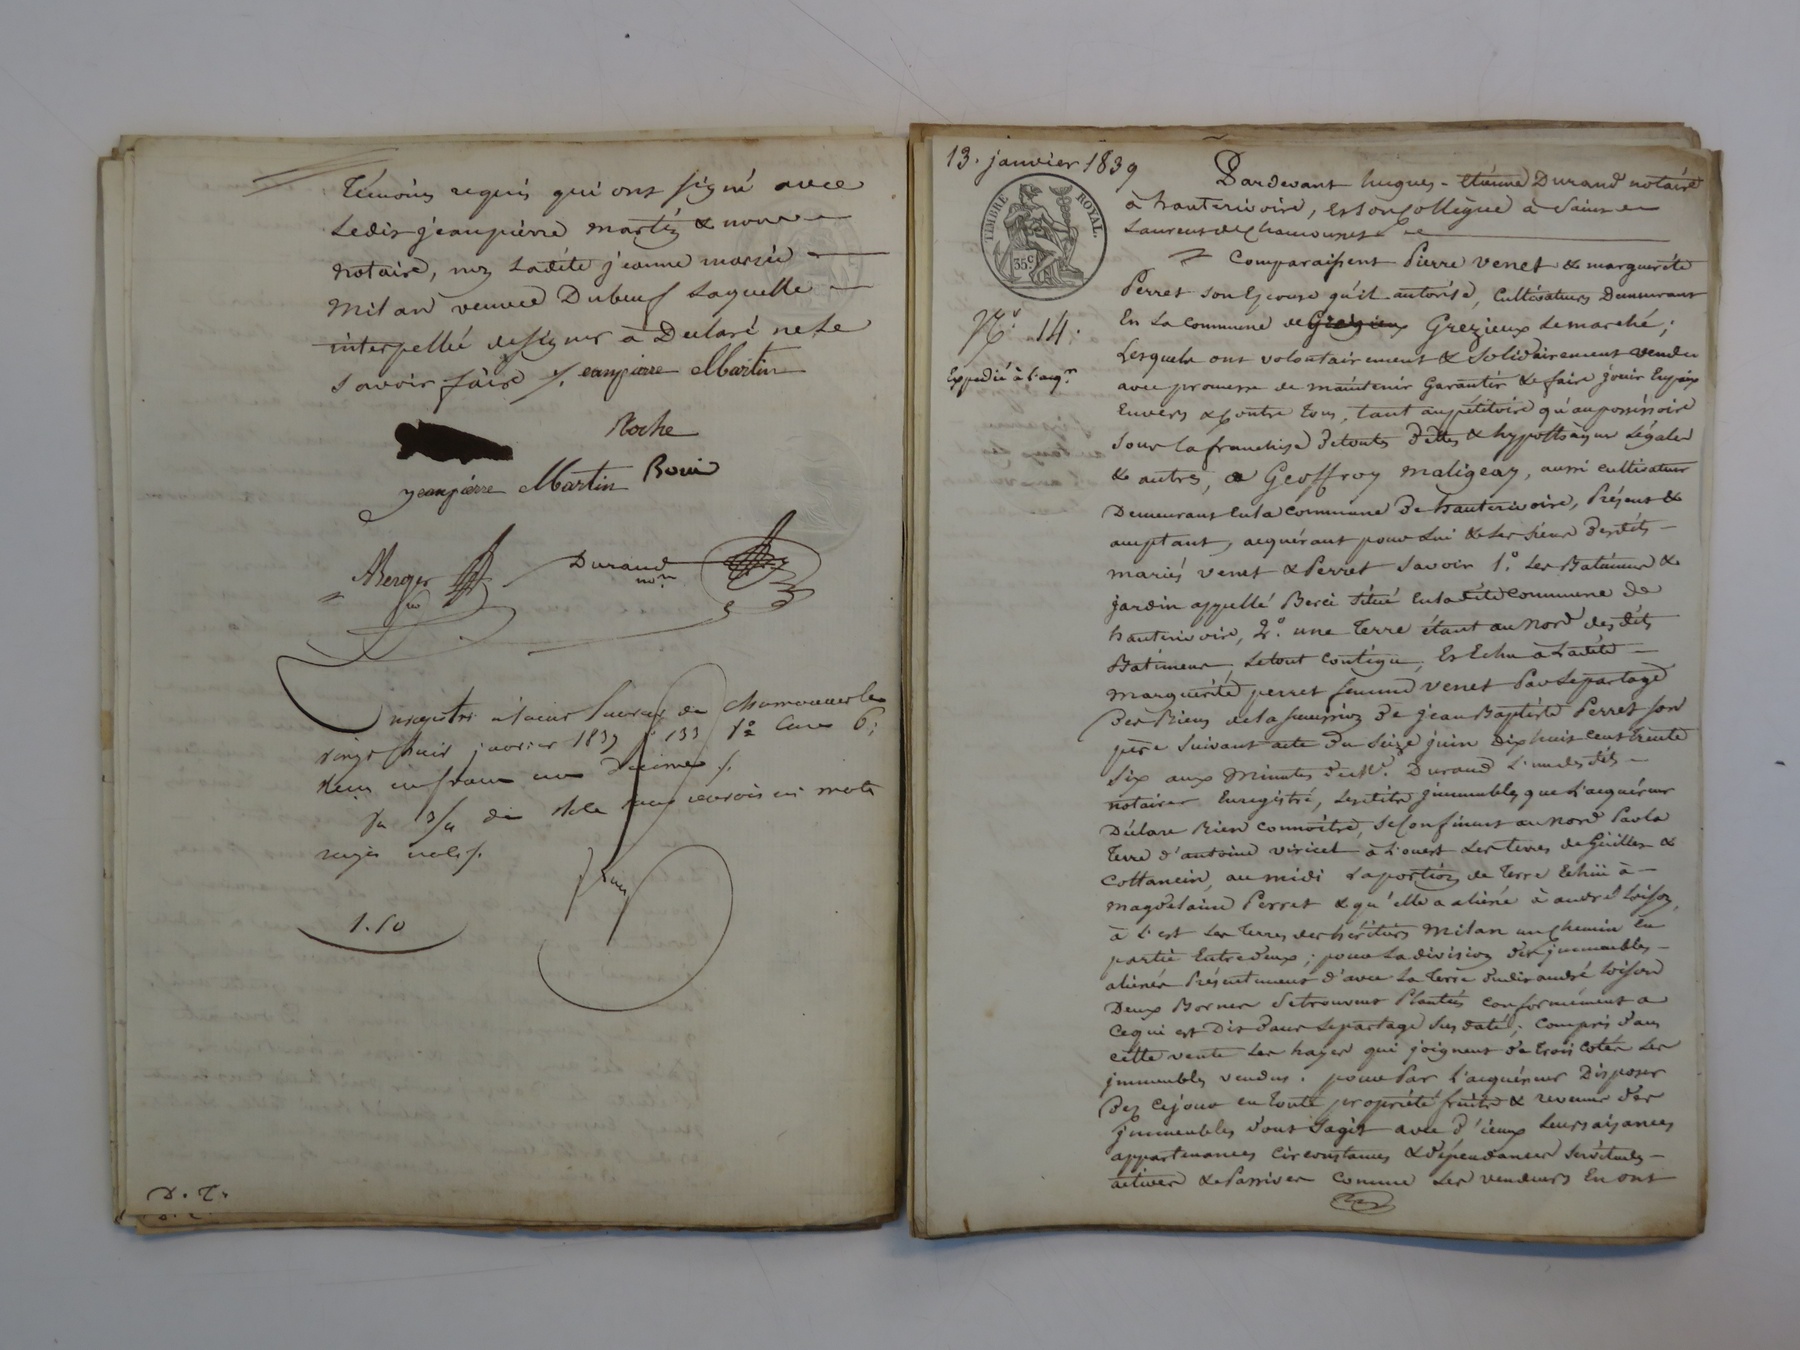 Témoins requis qui ont signé avec
Ledit jeanpierre martin & nous
notaire, non Ladite jeanne marie
Milan veuve Dubeuf Laquelle
interpellée de signer à Déclaré ne Le
savoir faire ⁄. jeanpierre Martin
Roche
jeanpierre Martin Boui
ABerger
Durand
no.re
Enregistré à Saint Laurent de Chamousset le
vingt huit janvier 1839 f° 133 v° Case 6;
Reçu un franc un Décime ⁄.
rayés nuls ⁄.
1.10
D. T.
13. janvier 1839
TIMBRE ROYAL.
35 c
N.° 14.
Expedié à l'acq.r
Pardevant hugues - étienne Durand notaire
à hauterivoire, et son Collègue à Saint
Laurent de Chamousset
Comparaissent Pierre venet & marguerite
Perret son Epouse qu'il autorise, Cultivateurs Demeurant
En La commune de Grezieux Grezieux Le marché;
Lesquels ont volontairement & Solidairement vendu
avec promesse de maintenir Garantir & faire jouir En paix
Envers & Contre Tous, tant au pétitoire qu'au possessoire
Sous la franchise de toutes Dettes & hypothèques Légales
& autres, a Geoffroy maligeay, aussi cultivateur
Demeurant En La Commune De hauterivoire, Présent &
acceptant, acquérant pour Lui & Les Siens Desdits
mariés venet & Perret Savoir 1.° Les Batimens &
jardin appellé Berci Situé En Ladite Commune de
hauterivoire, 2.° une Terre étant au Nord des dits
Batimens, Le tout Contigu, Et Echu à Ladite
marguerite perret femme venet Par Le partage
Des Biens de La succession De jean Baptiste Perret son
père Suivant acte Du Seize juin Dix huit cent trente
Six aux Minutes de M.e Durand L'un des dits
notaires Enregistré, Lesdits jmmeubles que L'acquéreur
Déclare Bien Connoître, Se Confinent au Nord Par la
Terre d'antoine viricel à L'ouest Les terres de Guillen &
Cottancin, au midi La portion de Terre Echüe à
magdelaine Perret & qu'elle a aliéné à andré Loison,
à L'est Les Terres des héritiers Milan un Chemin En
partie Entredeux; pour La division des jmmeubles
aliénés Présentement d'avec La Terre dudit andré Loison
Deux Bornes Se trouvent Plantées Conformément a
Ce qui est Dit dans Le partage Sus daté; Compris dans
Cette vente Les hayes qui joignent de trois Cotés Les
jmmeubles vendus. pour Par L'acquéreur Disposer
Dez Ce jour en toute propriété fruits & revenus Des
jmmeubles Dont S'agit avec d'iceux Leurs aisances
appartenances Circonstances & dépendances Servitudes
actives & Passives Comme Les vendeurs En ont